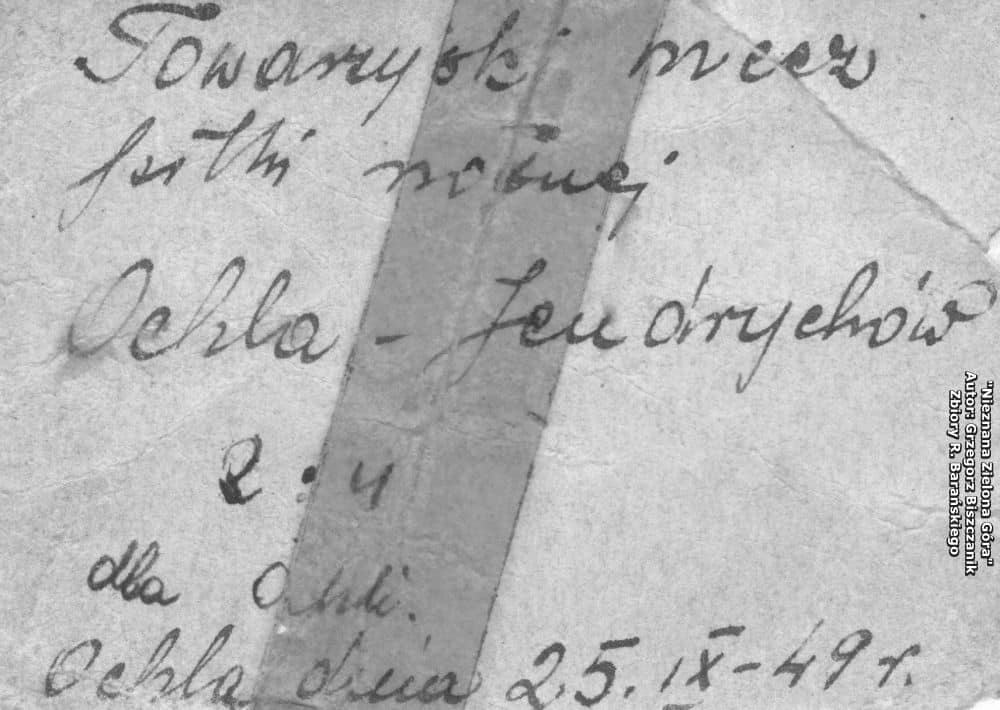 Towarzyski mecz
piłki nożnej
Ochla - Jendrychów
2 : 4
dla Ochli.
Ochla dnia 25. IX - 49 r.
"Nieznana Zielona Góra"
Autor: Grzegorz Biszczanik
Zbiory R. Barańskiego